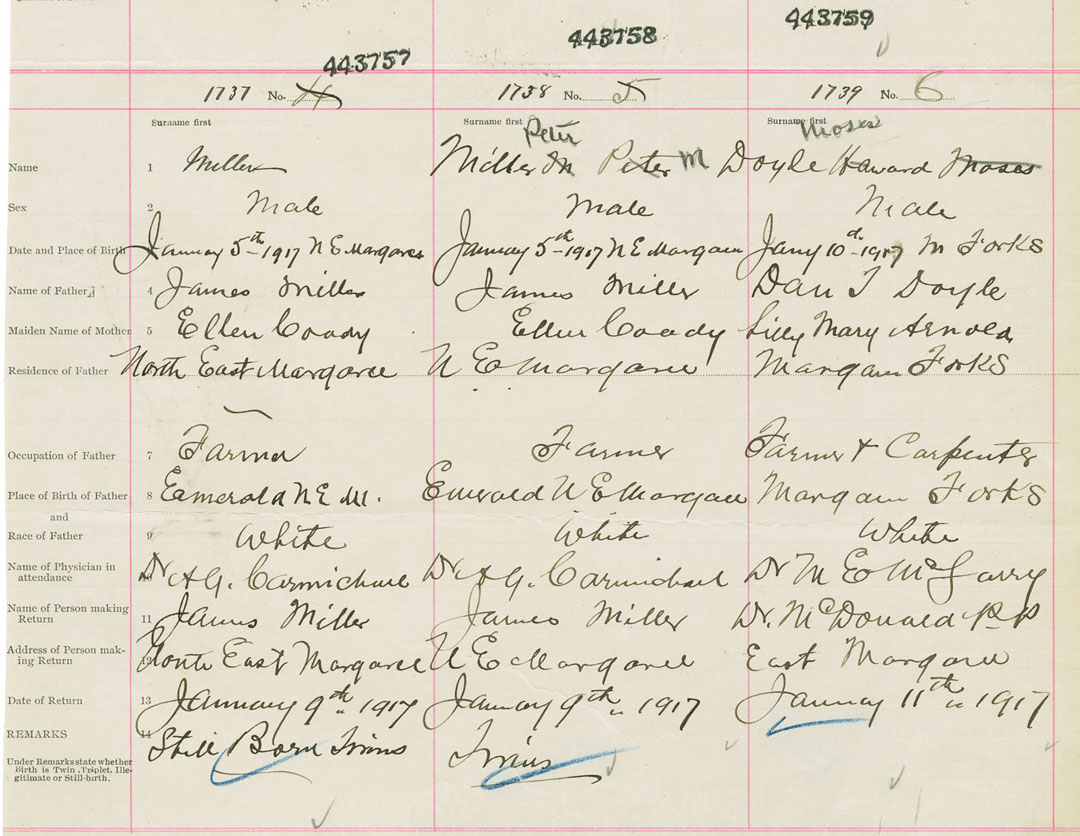 443757 443758 443759
1737 No. 4 1738 No. 5 1739 No. 6
Surname first Surname first Surname first
Peter Moses
Name 1 Miller Miller M Peter M Doyle Howard Moses
Sex 2 Male Male Male
Date and Place of Birth January 5th 1917 N E Margaree January 5th 1917 N E Margaree Jany 10th 1917 M Forks
Name of Father 4 James Miller James Miller Dan J Doyle
Maiden Name of Mother 5 Ellen Coady Ellen Coady Lilly Mary Arnold
Residence of Father North East Margaree N E Margaree Margaree Forks
Occupation of Father 7 Farmer Farmer Farmer & Carpenter
Place of Birth of Father 8 Emerald N E M. Emerald N E Margaree Margaree Forks
and
Race of Father 9 White White White
Name of Physician in
attendance 10 Dr A G. Carmichael Dr A G. Carmichael Dr M E McGarry
Name of Person making
Return 11 James Miller James Miller Dr. McDonald P.P
Address of Person mak-
ing Return 12 North East Margaree N E Margaree East Margaree
Date of Return 13 January 9th 1917 January 9th 1917 January 11th 1917
REMARKS 14 Still Born Twins Twins
Under Remarks state whether
Birth is Twin, Triplet, Ille-
gitimate or Still-birth.